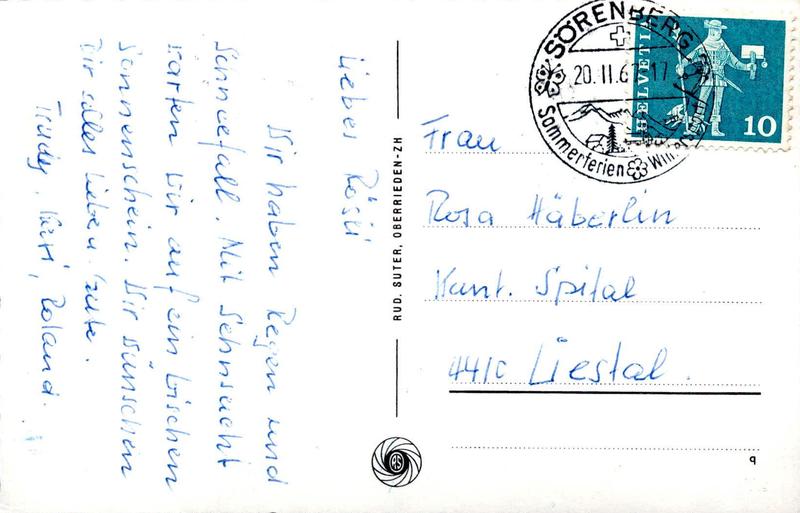 Liebes Rösli
Wir haben Regen und
Schneefall. Mit Sehnsucht
warten wir auf ein bischen
Sonnenschein. Wir wünschen
Dir alles Lieben. Gute.
Trudy, Kari, Roland.
RUD. SUTER, OBERRIEDEN-ZH
RS
SÖRENBERG
20.11.6 -17
Sommerferien
HELVETIA
10
Frau
Rosa Häberlin
Kant. Spital
4410 Liestal.
9